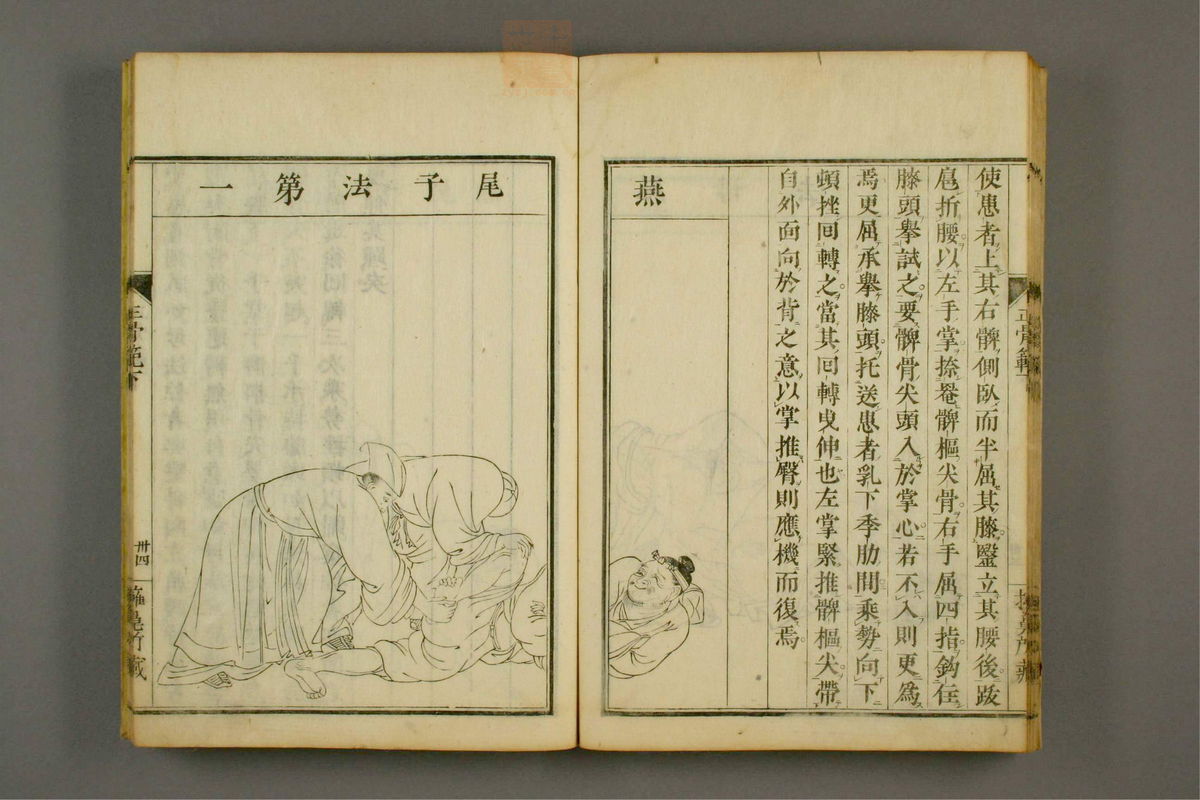 使患者上其右髀側臥而半屈其膝毉立其腰後跋
扈折腰以左手掌捺罨髀樞尖骨右手屈四指鈎住
膝頭擧試之要髀骨尖頭入於掌心若不入則更爲
焉更屈承擧膝頭托送患者乳下季肋間乘勢向下
頓挫回轉之當其回轉曳伸也左掌緊推髀樞尖帶
自外面向於背之意以掌推臀則應機而復焉
燕
尾子法第一
正骨範下
卅四